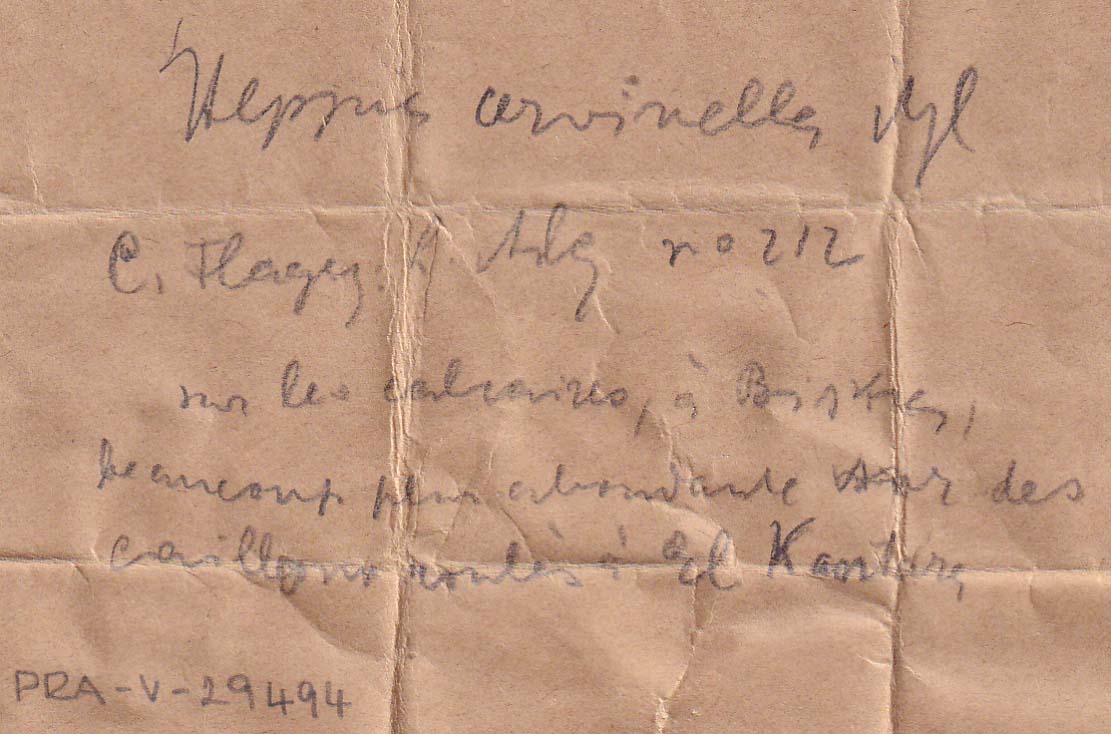 Heppia cervinella Nyl
C. Flagey. L. Alg no 212
sur les calcaires, à Biskra,
beaucoup plus abondante sur des
cailloux roulés à El Kantara
PRA-V-29494